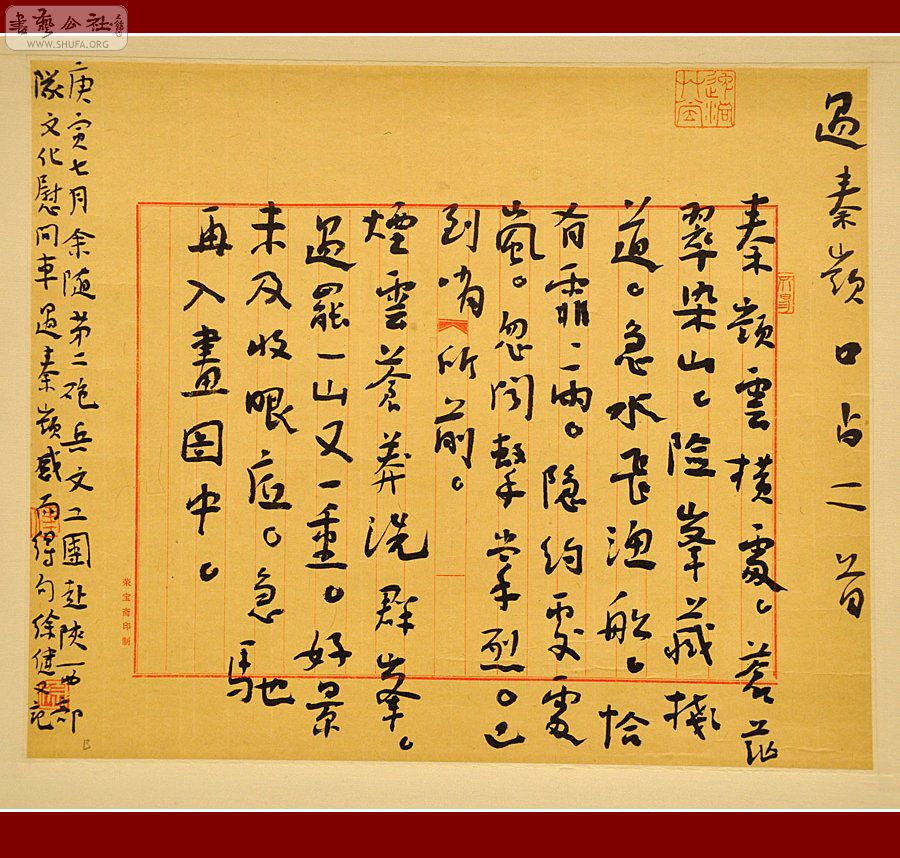 書藝公社
WWW.SHUFA.ORG
過秦嶺口占二首
秦嶺雲橫處。蒼茫
翠染山。險峯藏棧
道。急水長漁船。恰
有霏霏雨。隐約處處
嵐。忽聞擊掌烈。已
到哨所前。
煙雲蒼莽洗群峯。
過罷一山又一重。好景
未及收眼底。急馳
再入畫圖中。
庚寅七月余随第二砲兵文工團赴陝西部
隊文化慰问車過秦嶺感而得句徐健又記
榮宝斎印制